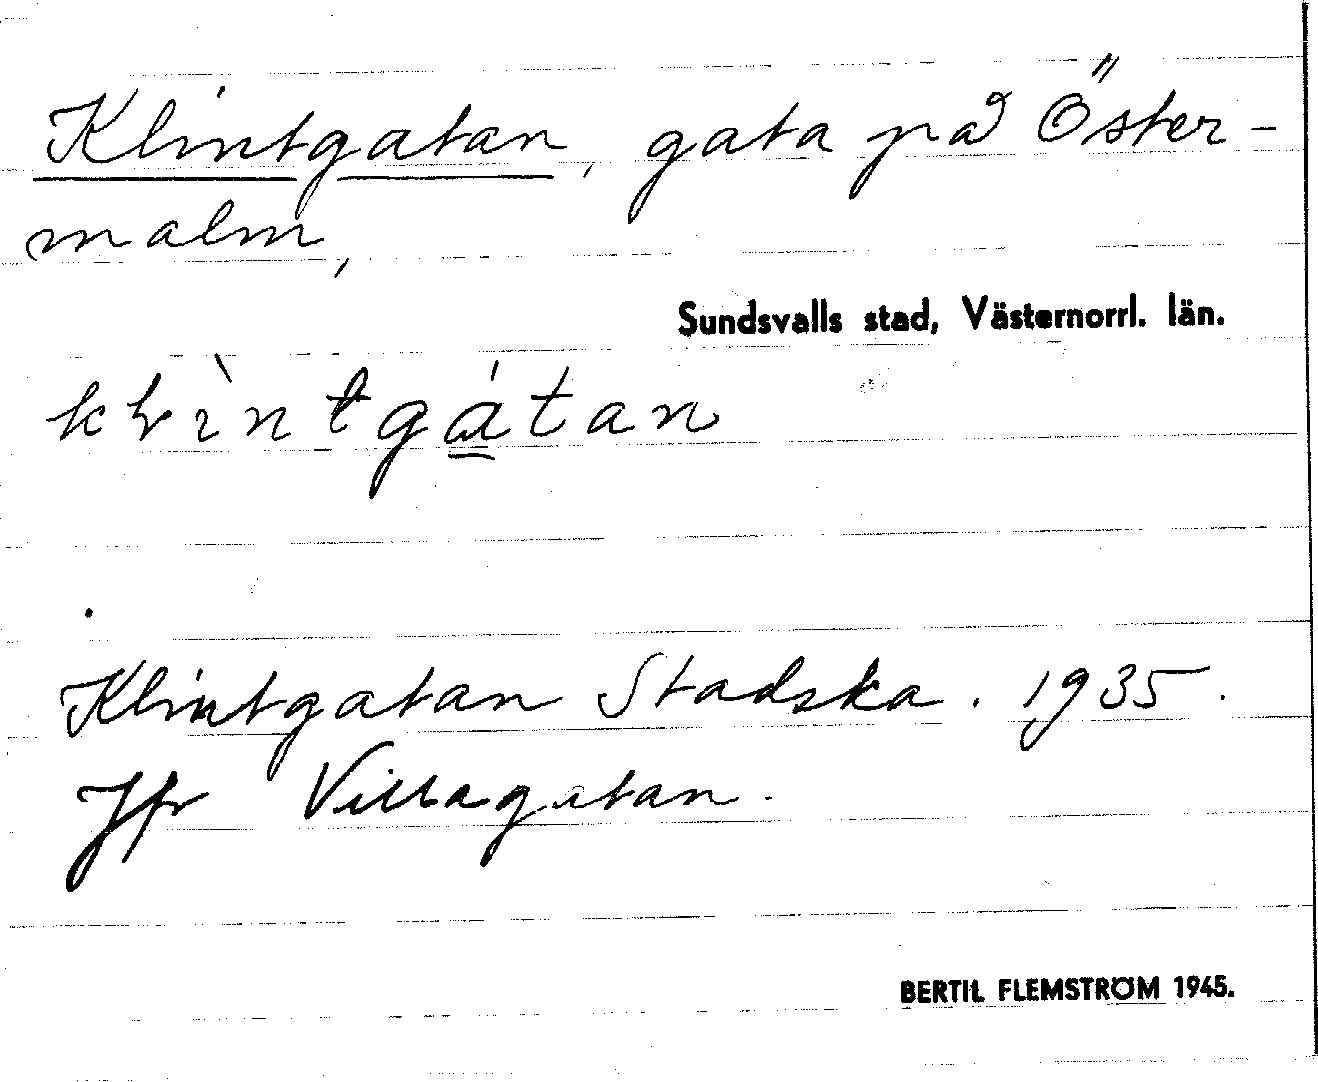 Klintgatan, gata på Öster-
malm,
Sundsvalls stad, Västernorrl. län.
klìntgátan
Klintgatan Stadska. 1935.
Jfr Villagatan.
BERTIL FLEMSTRÖM 1945.